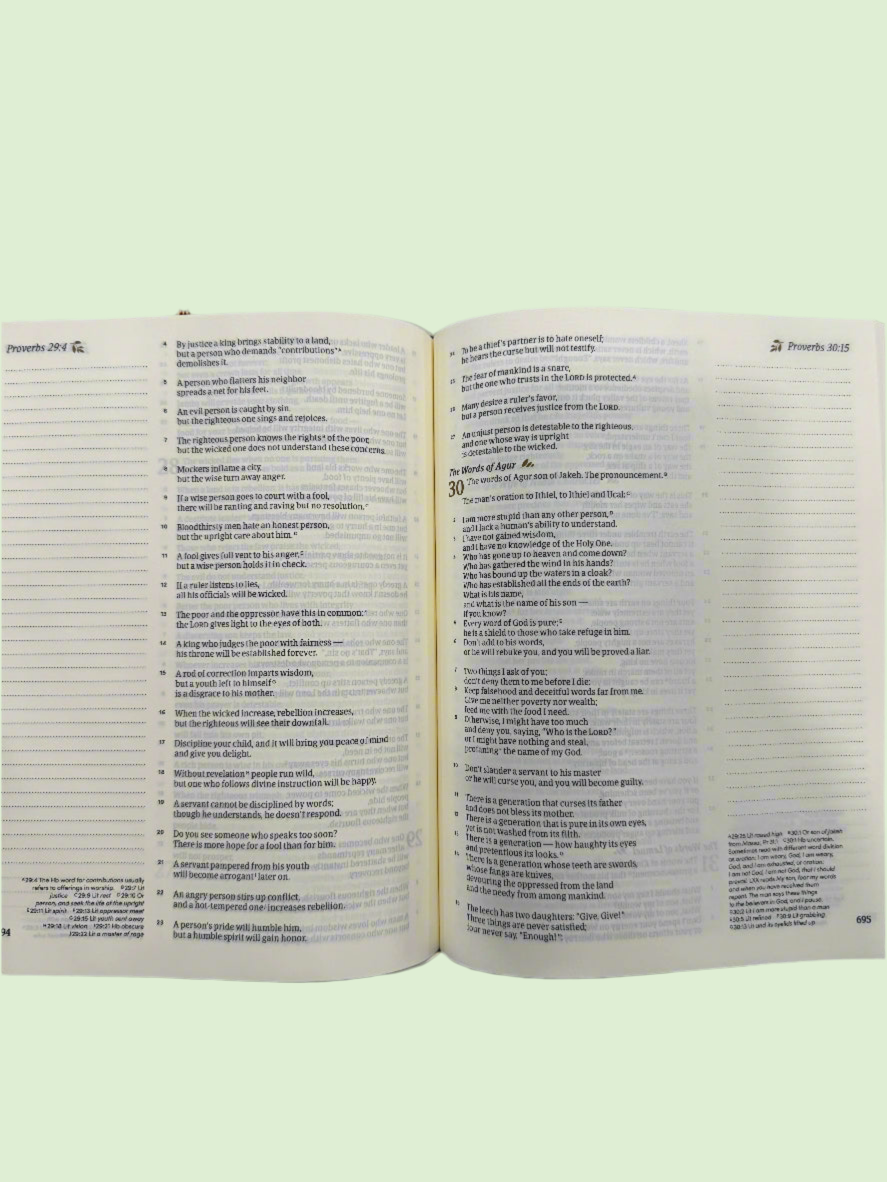 Proverbs 29:4
4 By justice a king brings stability to a land,
but a person who demands "contributions"ᴬ
demolishes it.
5 A person who flatters his neighbor
spreads a net for his feet.
6 An evil person is caught by sin,
but the righteous one sings and rejoices.
7 The righteous person knows the rightsᴮ of the poor,
but the wicked one does not understand these concerns.
8 Mockers inflame a city,
but the wise turn away anger.
9 If a wise person goes to court with a fool,
there will be ranting and raving but no resolution.ᶜ
10 Bloodthirsty men hate an honest person,
but the upright care about him.ᴰ
11 A fool gives full vent to his anger,ᴱ
but a wise person holds it in check.
12 If a ruler listens to lies,
all his officials will be wicked.
13 The poor and the oppressor have this in common:ᶠ
the LORD gives light to the eyes of both.
14 A king who judges the poor with fairness —
his throne will be established forever.
15 A rod of correction imparts wisdom,
but a youth left to himselfᴳ
is a disgrace to his mother.
16 When the wicked increase, rebellion increases,
but the righteous will see their downfall.
17 Discipline your child, and it will bring you peace of mind
and give you delight.
18 Without revelationᴴ people run wild,
but one who follows divine instruction will be happy.
19 A servant cannot be disciplined by words;
though he understands, he doesn't respond.
20 Do you see someone who speaks too soon?
There is more hope for a fool than for him.
21 A servant pampered from his youth
will become arrogantᴵ later on.
22 An angry person stirs up conflict,
and a hot-tempered oneᴶ increases rebellion.
23 A person's pride will humble him,
but a humble spirit will gain honor.
ᴬ29:4 The Hb word for contributions usually
refers to offerings in worship. ᴮ29:7 Lit
justice ᶜ29:9 Lit rest ᴰ29:10 Or
person, and seek the life of the upright
ᴱ29:11 Lit spirit ᶠ29:13 Lit oppressor meet
ᴳ29:15 Lit youth sent away
ᴴ29:18 Lit vision ᴵ29:21 Hb obscure
ᴶ29:22 Lit a master of rage
94
Proverbs 30:15
24 To be a thief's partner is to hate oneself;
he hears the curse but will not testify.
25 The fear of mankind is a snare,
but the one who trusts in the LORD is protected.ᴬ
26 Many desire a ruler's favor,
but a person receives justice from the LORD.
27 An unjust person is detestable to the righteous,
and one whose way is upright
is detestable to the wicked.
The Words of Agur
30 The words of Agur son of Jakeh. The pronouncement.ᴮ
The man's oration to Ithiel, to Ithiel and Ucal:ᶜ
2 I am more stupid than any other person,ᴰ
and I lack a human's ability to understand.
3 I have not gained wisdom,
and I have no knowledge of the Holy One.
4 Who has gone up to heaven and come down?
Who has gathered the wind in his hands?
Who has bound up the waters in a cloak?
Who has established all the ends of the earth?
What is his name,
and what is the name of his son —
if you know?
5 Every word of God is pure;ᴱ
he is a shield to those who take refuge in him.
6 Don't add to his words,
or he will rebuke you, and you will be proved a liar.
7 Two things I ask of you;
don't deny them to me before I die:
8 Keep falsehood and deceitful words far from me.
Give me neither poverty nor wealth;
feed me with the food I need.
9 Otherwise, I might have too much
and deny you, saying, "Who is the LORD?"
or I might have nothing and steal,
profaningᶠ the name of my God.
10 Don't slander a servant to his master
or he will curse you, and you will become guilty.
11 There is a generation that curses its father
and does not bless its mother.
12 There is a generation that is pure in its own eyes,
yet is not washed from its filth.
13 There is a generation — how haughty its eyes
and pretentious its looks.ᴳ
14 There is a generation whose teeth are swords,
whose fangs are knives,
devouring the oppressed from the land
and the needy from among mankind.
15 The leech has two daughters: "Give, Give!"
Three things are never satisfied;
four never say, "Enough!":
ᴬ29:25 Lit raised high ᴮ30:1 Or son of Jakeh
from Massa; Pr 31:1 ᶜ30:1 Hb uncertain.
Sometimes read with different word division
as oration: I am weary, God, I am weary,
God, and I am exhausted, or oration:
I am not God, I am not God, that I should
prevail. LXX reads My son, fear my words
and when you have received them
repent. The man says these things
to the believers in God, and I pause.
ᴰ30:2 Lit I am more stupid than a man
ᴱ30:5 Lit refined ᶠ30:9 Lit grabbing
ᴳ30:13 Lit and its eyelids lifted up
695